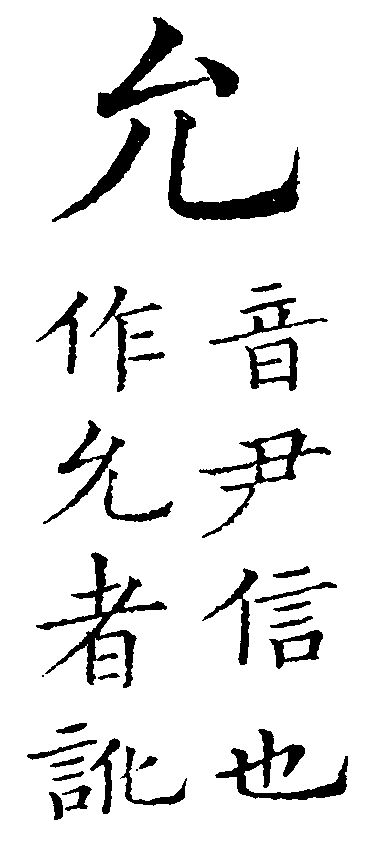 允
音尹信也
作𠃔者訛